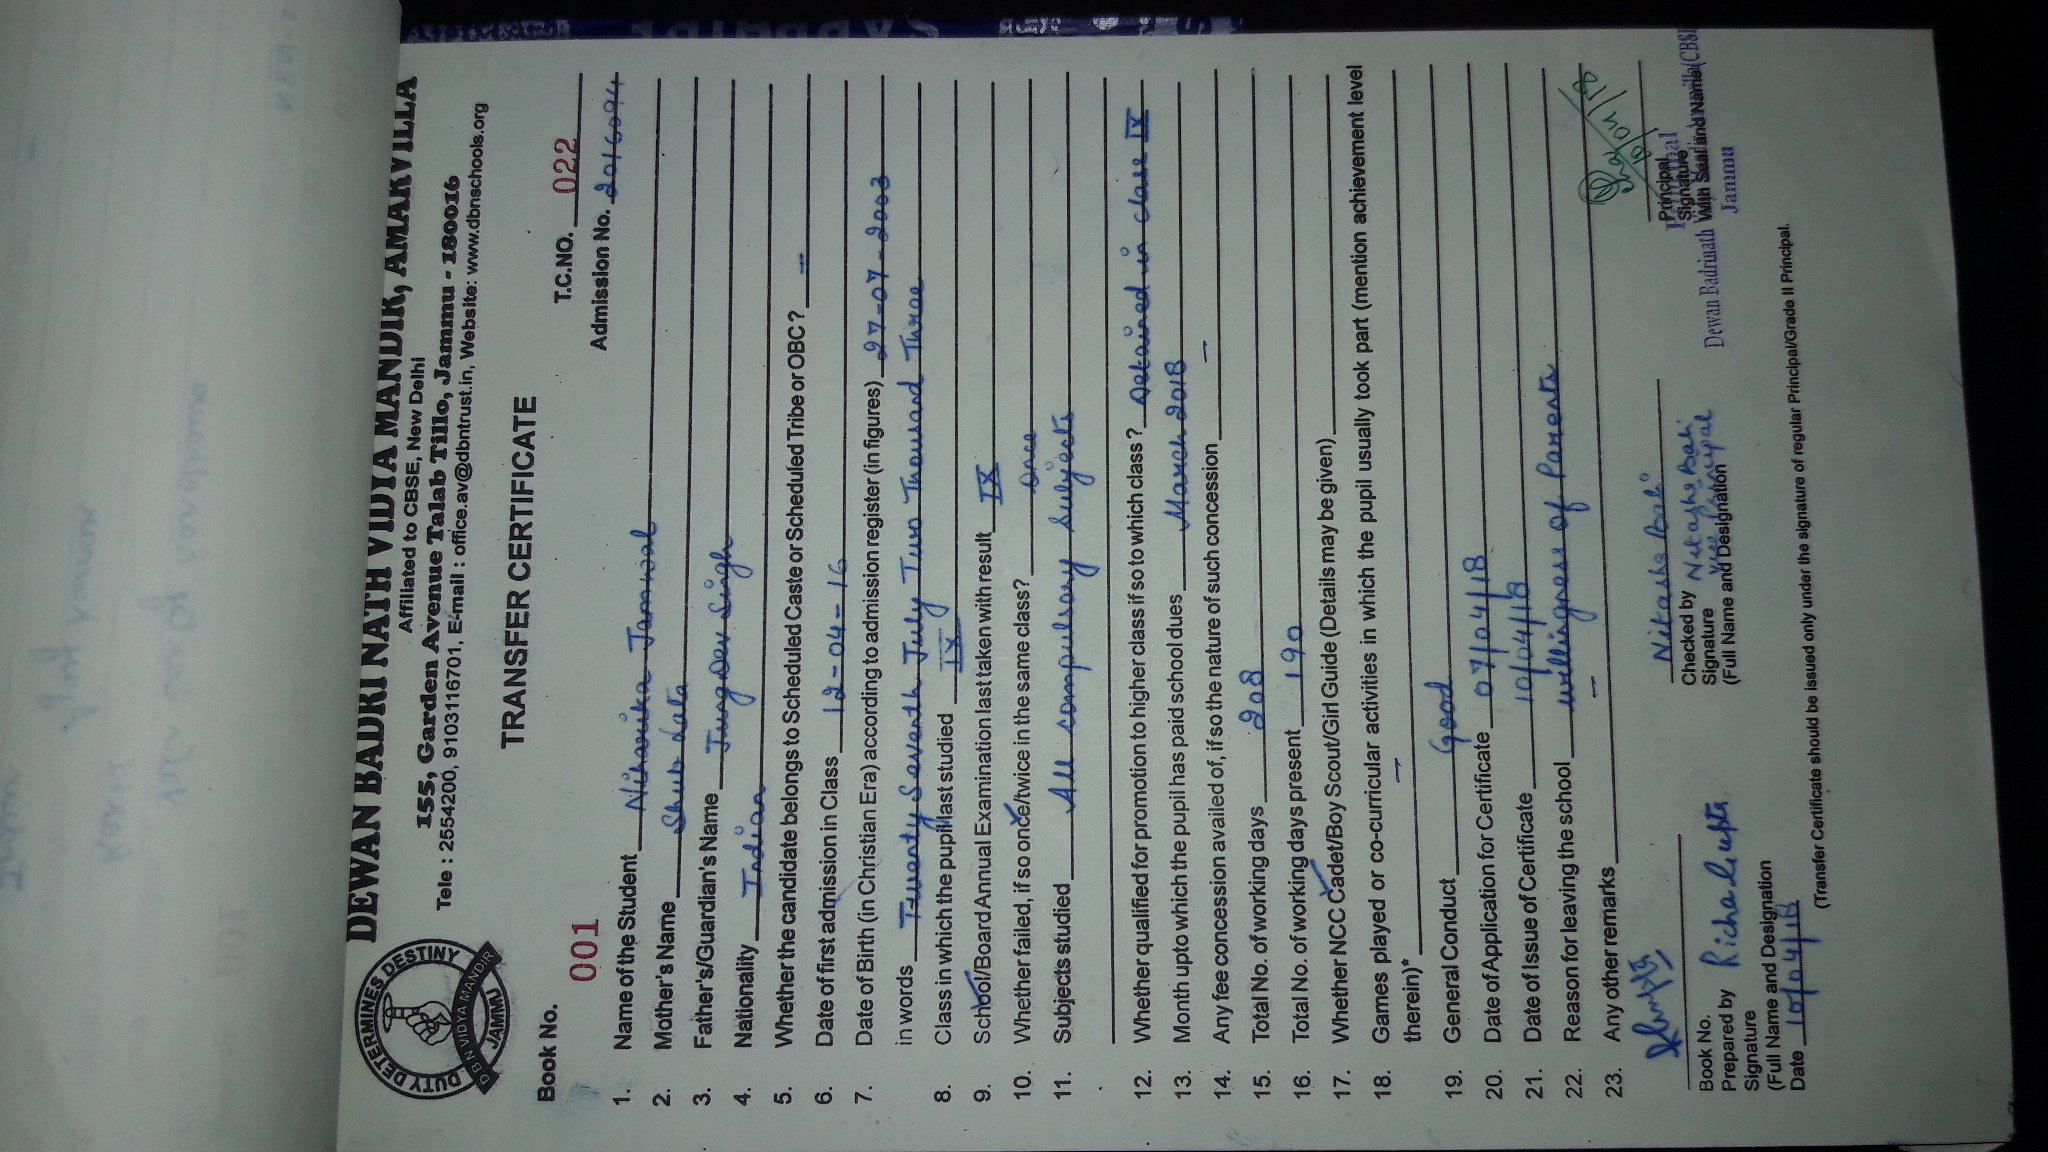 DEWAN BADRI NATH VIDYA MANDIR, AMARVILLA
Affiliated to CBSE, New Delhi
155, Garden Avenue Talab Tillo, Jammu - 180016
Tele : 2554200, 9103116701, E-mail : office.av@dbntrust.in, Website: www.dbnschools.org
DUTY DETERMINES DESTINY
D B N VIDYA MANDIR
JAMMU
TRANSFER CERTIFICATE
Book No. 001
T.C.NO. 022
Admission No. 2016094
1. Name of the Student Niharika Jamwal
2. Mother's Name Shub Lata
3. Father's/Guardian's Name Jungdev Singh
4. Nationality Indian
5. Whether the candidate belongs to Scheduled Caste or Scheduled Tribe or OBC? —
6. Date of first admission in Class 12-04-16
7. Date of Birth (in Christian Era) according to admission register (in figures) 27-07-2003
in words Twenty Seventh July Two Thousand Three
8. Class in which the pupil last studied IX
9. School/Board Annual Examination last taken with result IX
10. Whether failed, if so once/twice in the same class? Once
11. Subjects studied All compulsory subjects
12. Whether qualified for promotion to higher class if so to which class? Detained in class IX
13. Month upto which the pupil has paid school dues March 2018
14. Any fee concession availed of, if so the nature of such concession —
15. Total No. of working days 208
16. Total No. of working days present 190
17. Whether NCC Cadet/Boy Scout/Girl Guide (Details may be given)
18. Games played or co-curricular activities in which the pupil usually took part (mention achievement level
therein)* —
19. General Conduct Good
20. Date of Application for Certificate 07/04/18
21. Date of Issue of Certificate 10/04/18
22. Reason for leaving the school willingness of Parents
23. Any other remarks —
Book No.
Prepared by Richa Gupta
Signature
(Full Name and Designation
Date 10/04/18
Nitasha Bali
Checked by Nitasha Bali
Signature Vice Principal
(Full Name and Designation
10/04/18
Principal
Signature
With Seal and Name
Principal
Dewan Badrinath Vidya Mandir (CBSE
Jammu
(Transfer Certificate should be issued only under the signature of regular Principal/Grade II Principal.